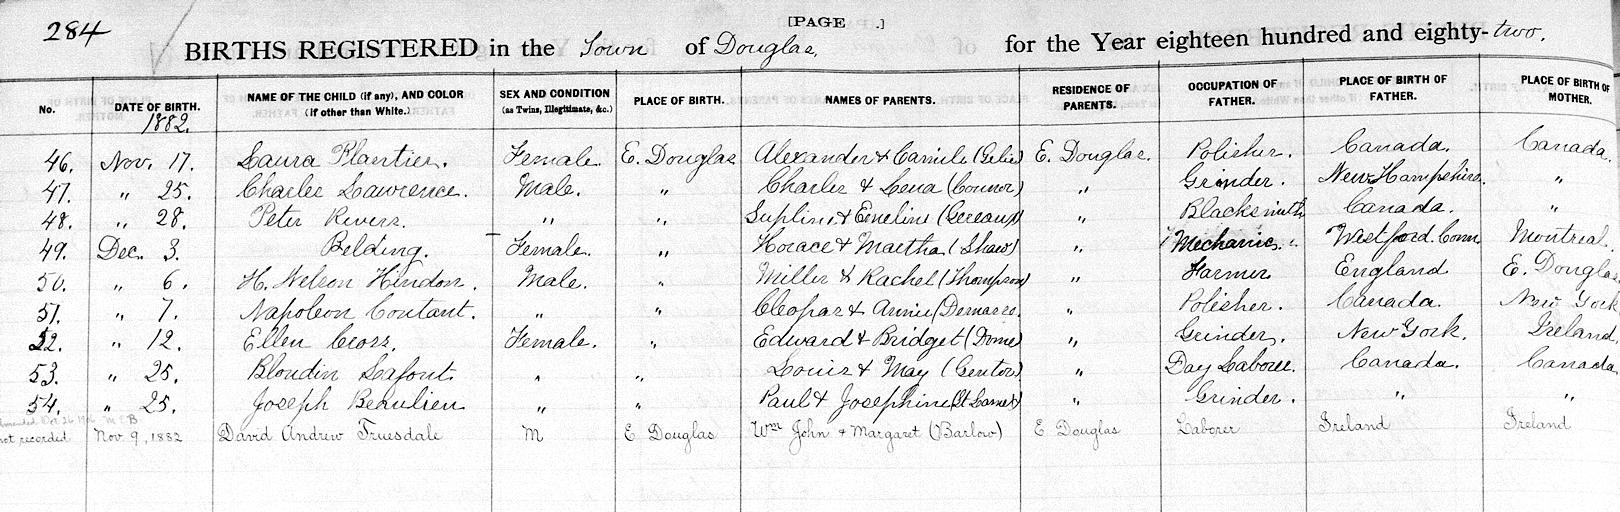 284 [PAGE .]
BIRTHS REGISTERED in the Town of Douglas, for the Year eighteen hundred and eighty-two.
No. DATE OF BIRTH. 1882. NAME OF THE CHILD (if any), AND COLOR (if other than White.) SEX AND CONDITION (as Twins, Illegitimate, &c.) PLACE OF BIRTH. NAMES OF PARENTS. RESIDENCE OF PARENTS. OCCUPATION OF FATHER. PLACE OF BIRTH OF FATHER. PLACE OF BIRTH OF MOTHER.
46. Nov. 17. Laura Plantier. Female. E. Douglas Alexander & Camile (Gelie) E. Douglas. Polisher. Canada. Canada.
47. " 25. Charles Lawrence. Male. " Charles & Lena (Connor) " Grinder. New Hampshire. "
48. " 28. Peter Rivers. " " & Emeline " Blacksmith Canada. "
49. Dec. 3. Belding. Female. " Horace & Martha (Shaw) " Mechanic. Westford. Conn Montreal.
50. " 6. H. Nelson Hindon. Male. " Miller & Rachel (Thompson) " Farmer England E. Douglas
51. " 7. Napoleon Coutant. " " Cleopas & Annie (Demarco. " Polisher. Canada. New York
52. " 12. Ellen Cross. Female. " Edward & Bridget " Grinder. New York. Ireland.
53. " 25. Blondin Lafont. " " Louis & May " Day Laborer. Canada. Canada.
54. " 25. Joseph Beaulieu " " Paul & Josephine " Grinder. " "
Amended Oct 26
not recorded Nov. 9, 1882 David Andrew Truesdale M E Douglas Wm John & Margaret (Barlow) E Douglas Laborer Ireland Ireland